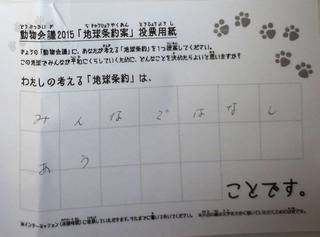 動物会議2015「地球条約案」投票用紙
きょうの「動物会議」に、あなたが考える「地球条約」を1つ提案してください。
この地球でみんなが平和にくらしていくために、どんなことを決めたらよいと思いますか?
わたしの考える「地球条約」は、
みんなではなし
あう
ことです。